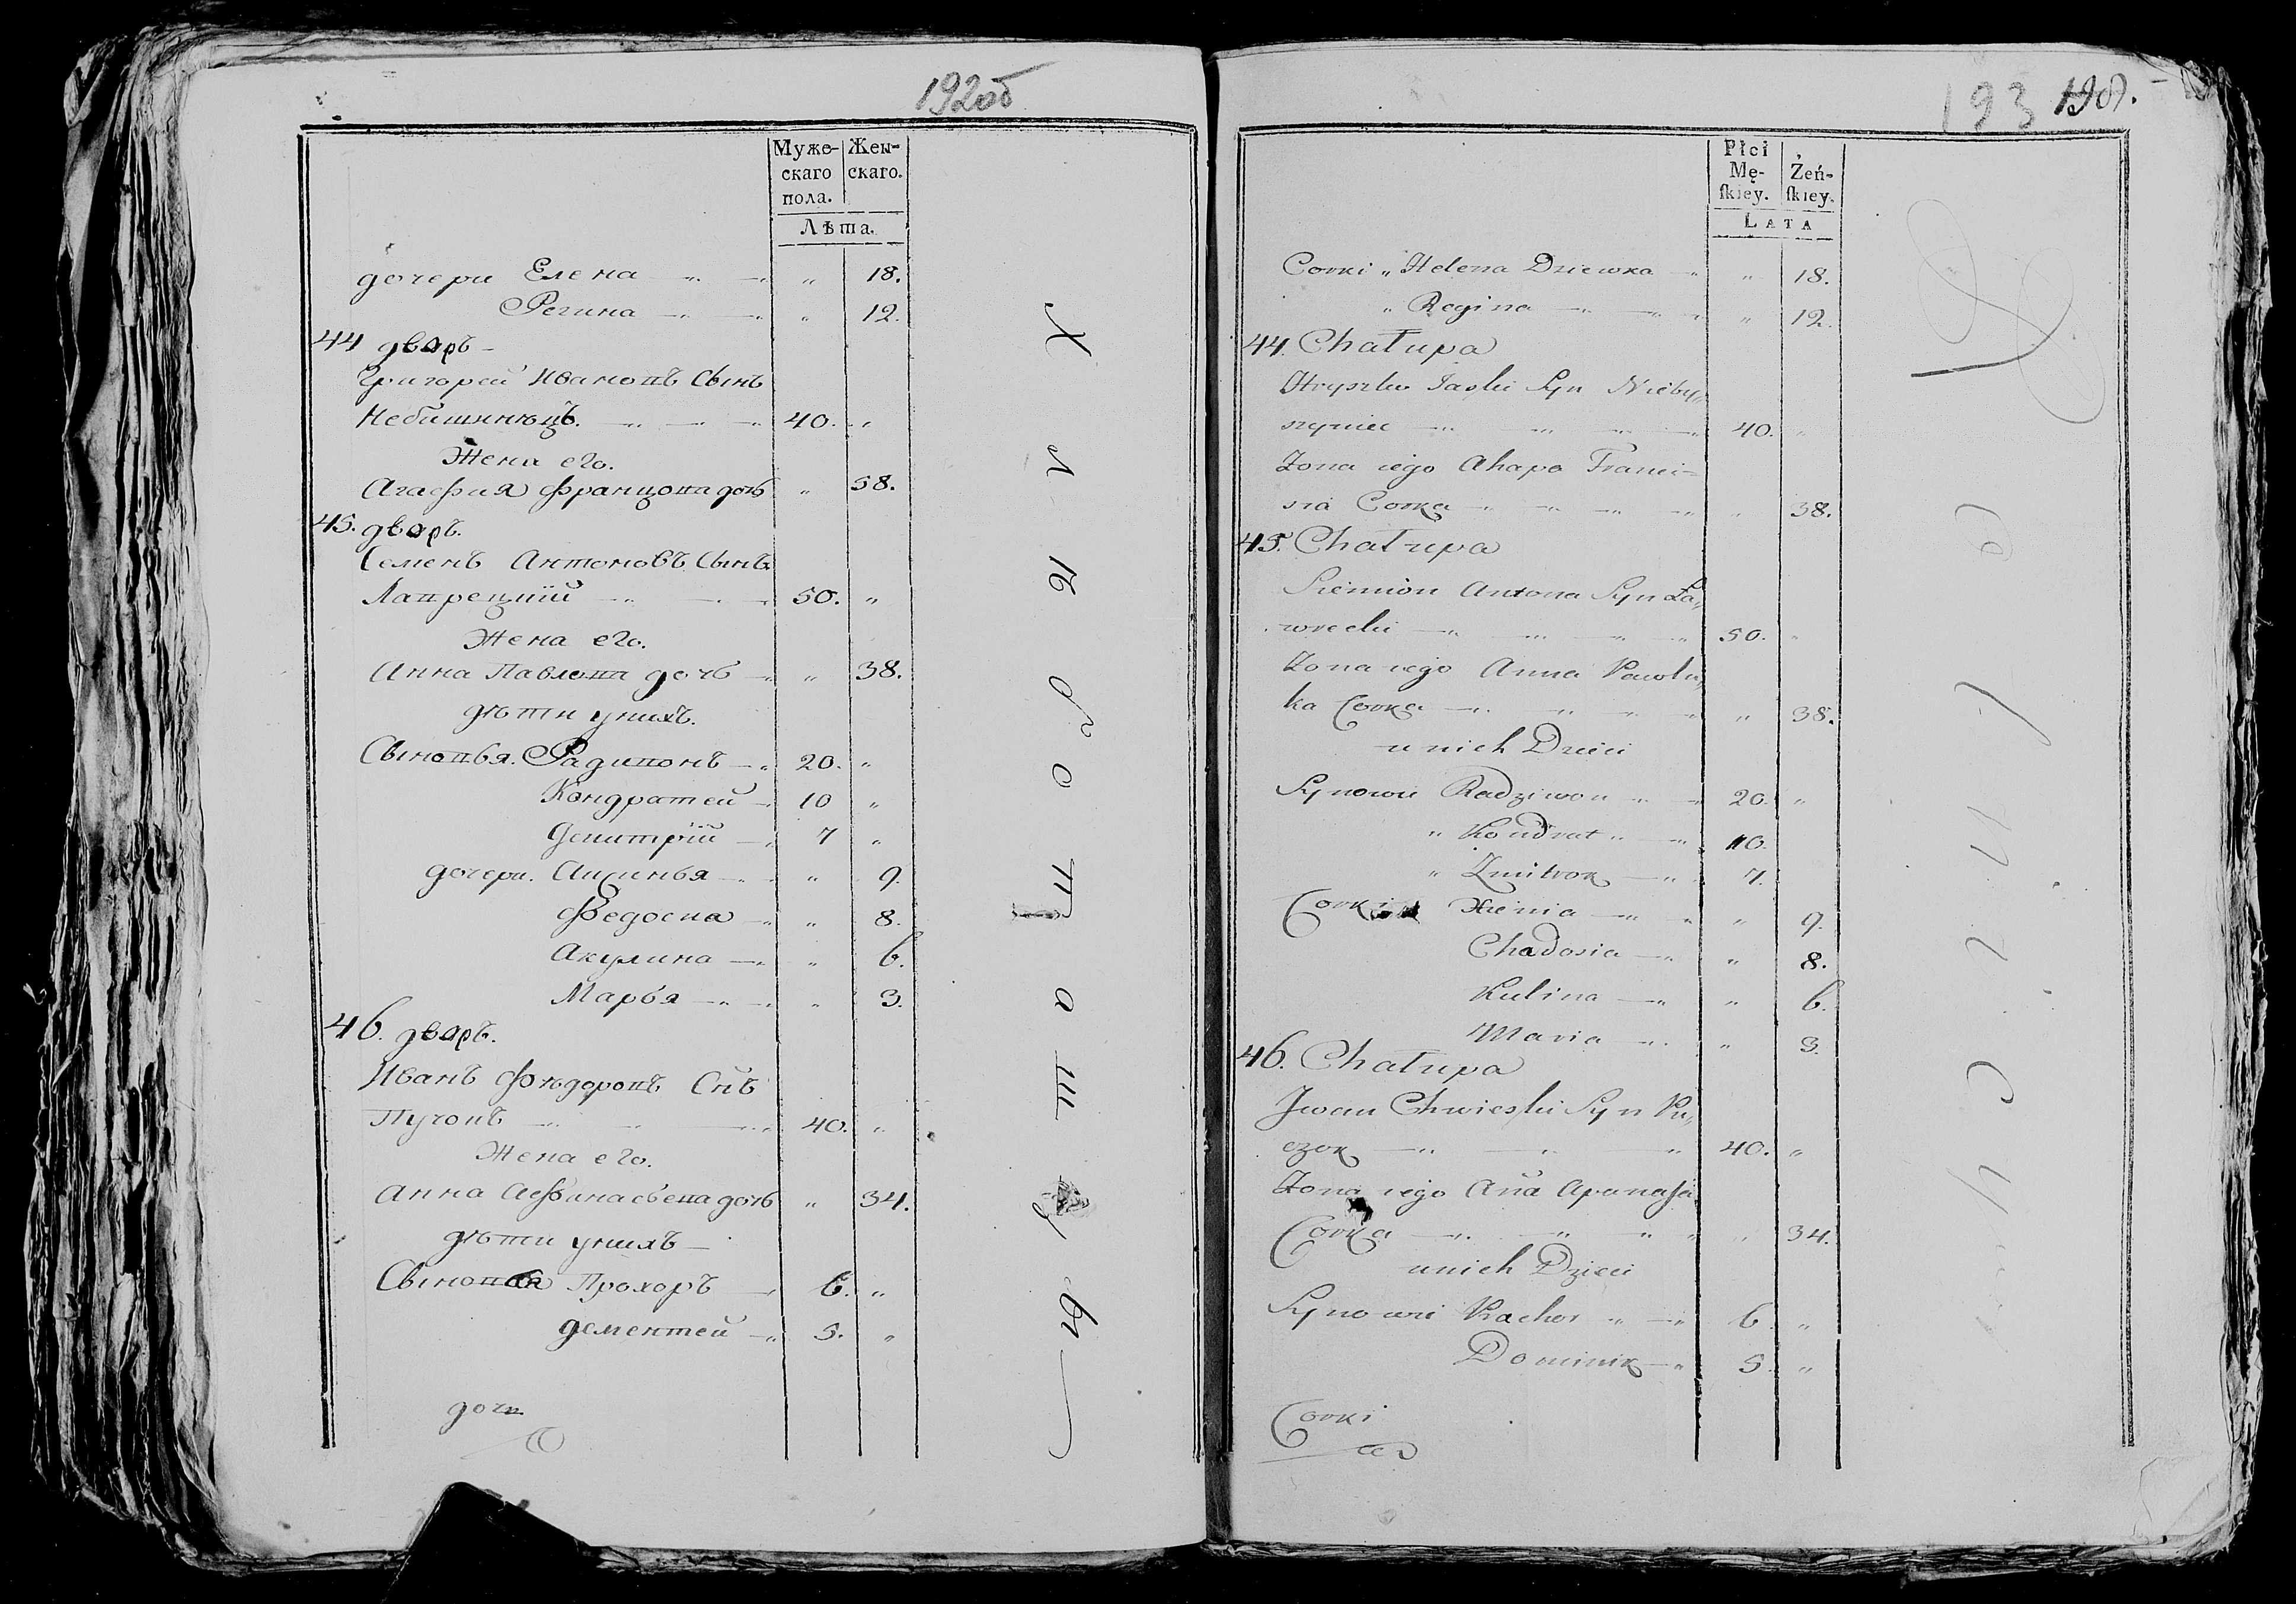 192об
Муже-
скаго
пола.
Жен-
скаго.
Лѣта.
дочери Елена — „ — „ „ 18.
Регина — „ — „ „ 12.
44 дворъ –
Григорей Ивановъ Сынъ
Небишинецъ. — „ — „ 40. „
Жена его.
Агафия Францова дочь „ 58.
45. дворъ.
Семенъ Антоновъ Сынъ
Лаврецкий — „ — „ 50. „
Жена его.
Анна Павлова дочь — „ „ 38.
дѣти унихъ.
Сыновья. Радивонъ — „ 20. „
Кондратей — 10 „
Демитрий — 7 „
дочери. Аксинья — „ „ 9.
Федосиа — „ „ 8.
Акулина — „ „ 6.
Марья — „ „ 3.
46. дворъ.
Иванъ Фѣдоровъ Снъ
Пучокъ — „ 40. „
Жена его.
Анна Афанасьева дочь „ 34.
дѣти унихъ –
Сыновья Прохоръ — 6. „
Дементей — „ 5. „
дочи
193 198.
Płci
Mę-
ſkiey.
Żeń-
ſkiey.
LATA
Corki „ Helena Dziewka — „ „ 18.
„ Regina — „ — „ „ 12.
44. Chałupa
Hryszko Jaśki Syn Nieby„
szyniec — „ 40. „
Zona iego Ahapa Franci=
szka Corka — „ „ 38.
45. Chałupa
Siemion Antona Syn Ła„
wrecki — „ 50. „
Zona iego Anna Pawlu„
ka Corka — „ „ 38.
u nich Dzieci
Synowie Radziwon „ — „ 20. „
„ Kondrat „ — „ 10.
„ Zmitrok — „ 7.
Corki Xienia — „ „ 9.
Chadosia — „ „ 8.
Kulina — „ „ 6.
Maria — „ „ 3.
46. Chałupa
Jwan Chwieśki Syn Pu„
czok — „ 40. „
Zona iego Aña Apanaſa
Corka — „ „ 34.
unich Dzieci
Synowie Prachor „ — „ 6 „
Dominik — „ 5 „
Corki